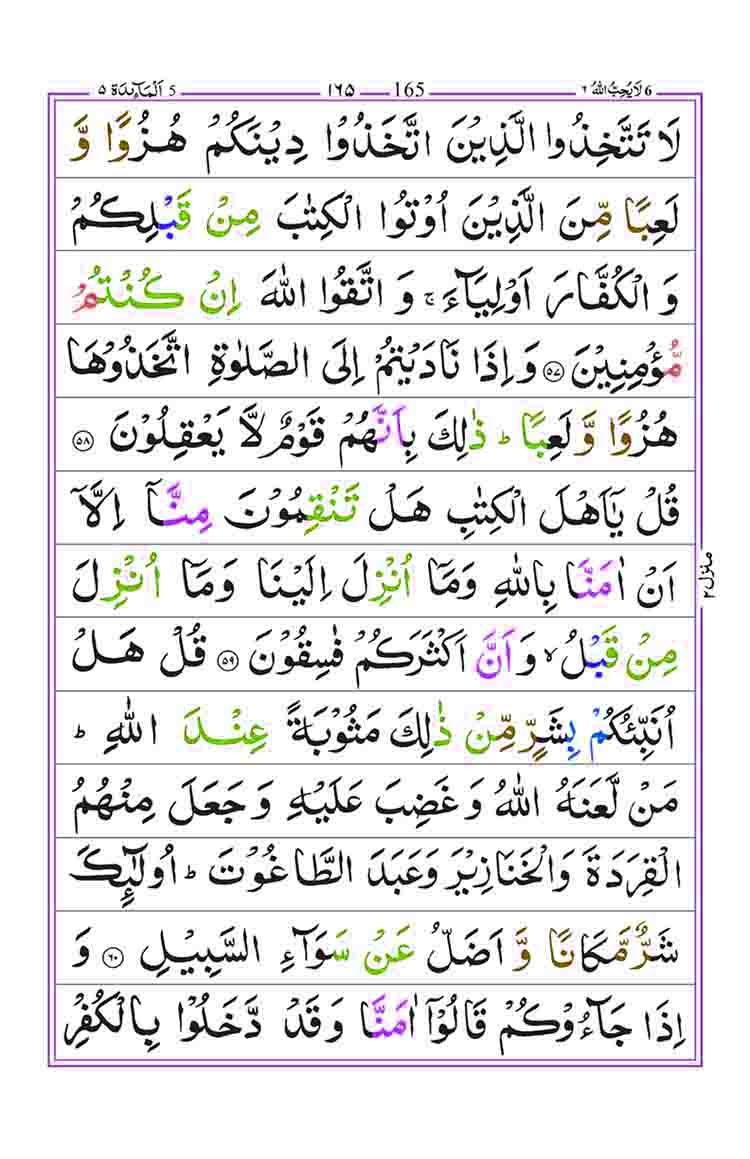 6 لَا يُحِبُّ اللّٰهُ ٦ 165 ١٦٥ 5 اَلْمَآئِدَة ٥
لَا تَتَّخِذُوا الَّذِيْنَ اتَّخَذُوْا دِيْنَكُمْ هُزُوًا وَّ
لَعِبًا مِّنَ الَّذِيْنَ اُوْتُوا الْكِتٰبَ مِنْ قَبْلِكُمْ
وَ الْكُفَّارَ اَوْلِيَآءَ ۚ وَ اتَّقُوا اللّٰهَ اِنْ كُنْتُمْ
مُّؤْمِنِيْنَ ۝٥٧ وَ اِذَا نَادَيْتُمْ اِلَى الصَّلٰوةِ اتَّخَذُوْهَا
هُزُوًا وَّ لَعِبًا ؕ ذٰلِكَ بِاَنَّهُمْ قَوْمٌ لَّا يَعْقِلُوْنَ ۝٥٨
قُلْ يٰۤاَهْلَ الْكِتٰبِ هَلْ تَنْقِمُوْنَ مِنَّاۤ اِلَّاۤ
اَنْ اٰمَنَّا بِاللّٰهِ وَمَاۤ اُنْزِلَ اِلَيْنَا وَمَاۤ اُنْزِلَ
مِنْ قَبْلُ ۙ وَ اَنَّ اَكْثَرَكُمْ فٰسِقُوْنَ ۝٥٩ قُلْ هَلْ
اُنَبِّئُكُمْ بِشَرٍّ مِّنْ ذٰلِكَ مَثُوْبَةً عِنْدَ اللّٰهِ ؕ
مَنْ لَّعَنَهُ اللّٰهُ وَ غَضِبَ عَلَيْهِ وَ جَعَلَ مِنْهُمُ
الْقِرَدَةَ وَالْخَنَازِيْرَ وَعَبَدَ الطَّاغُوْتَ ؕ اُولٰٓئِكَ
شَرٌّ مَّكَانًا وَّ اَضَلُّ عَنْ سَوَآءِ السَّبِيْلِ ۝٦٠ وَ
اِذَا جَآءُوْكُمْ قَالُوْۤا اٰمَنَّا وَقَدْ دَّخَلُوْا بِالْكُفْرِ
منزل ٢